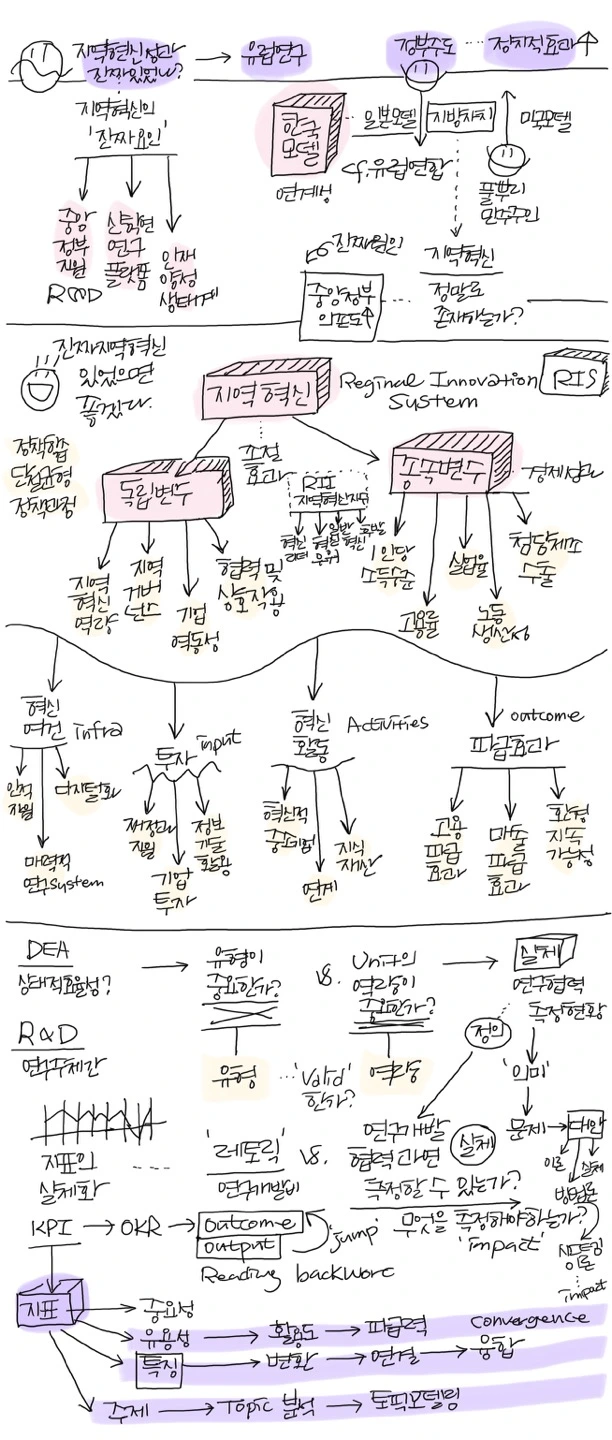 지역혁신성과
진짜 있었나?
유럽연구
정부주도
정치적효과
지역혁신의
'진짜요인'
한국
모델
일본모델
지방자치
미국모델
연계성
cf. 유럽연합
풀뿌리
민주주의
중앙
정부
지원
R&D
산학연
연구
플랫폼
인재
양성
생태계
진짜원인
중앙정부
의존도
지역혁신
정말로
존재하는가?
진짜지역혁신
있었으면
좋겠다.
지역 혁신
Reginal Innovation
System
RIS
정책혼합
단절균형
정책과정
독립변수
조절
효과
RII
종속변수
경제성과
지역
혁신
역량
지역
거버
넌스
기업
역동성
협력 및
상호작용
혁신
리더
1인당
소득수준
고용률
실업율
노동
생산성
첨단제조
수출
혁신
여건
infra
인적
자원
매력적
연구system
디지털화
투자
input
재정과
지원
기업
투자
정보
기술
활용
혁신
활동
Activities
혁신적
중소기업
연계
지식
재산
outcome
파급효과
고용
파급
효과
매출
파급
효과
환경
지속
가능성
DEA
상대적효율성?
유형이
중요한가?
vs.
Unit의
역량이
중요한가?
실제
연구협력
측정현황
R&D
연구주체간
유형
'Valid'
한가?
역량
정의
'의미'
문제
대안
이론
실제
방법론
지표의
실제화
'레토릭'
연구개발비
vs.
연구개발
협력 과연
측정할 수 있는가?
실체
KPI
OKR
outcome
output
'jump'
무엇을 측정하여야하는가?
'impact'
Reading backward
이론
impact
지표
중요성
유용성
활용도
파급력
convergence
특징
변환
연결
융합
주제
Topic 분석
토픽모델링